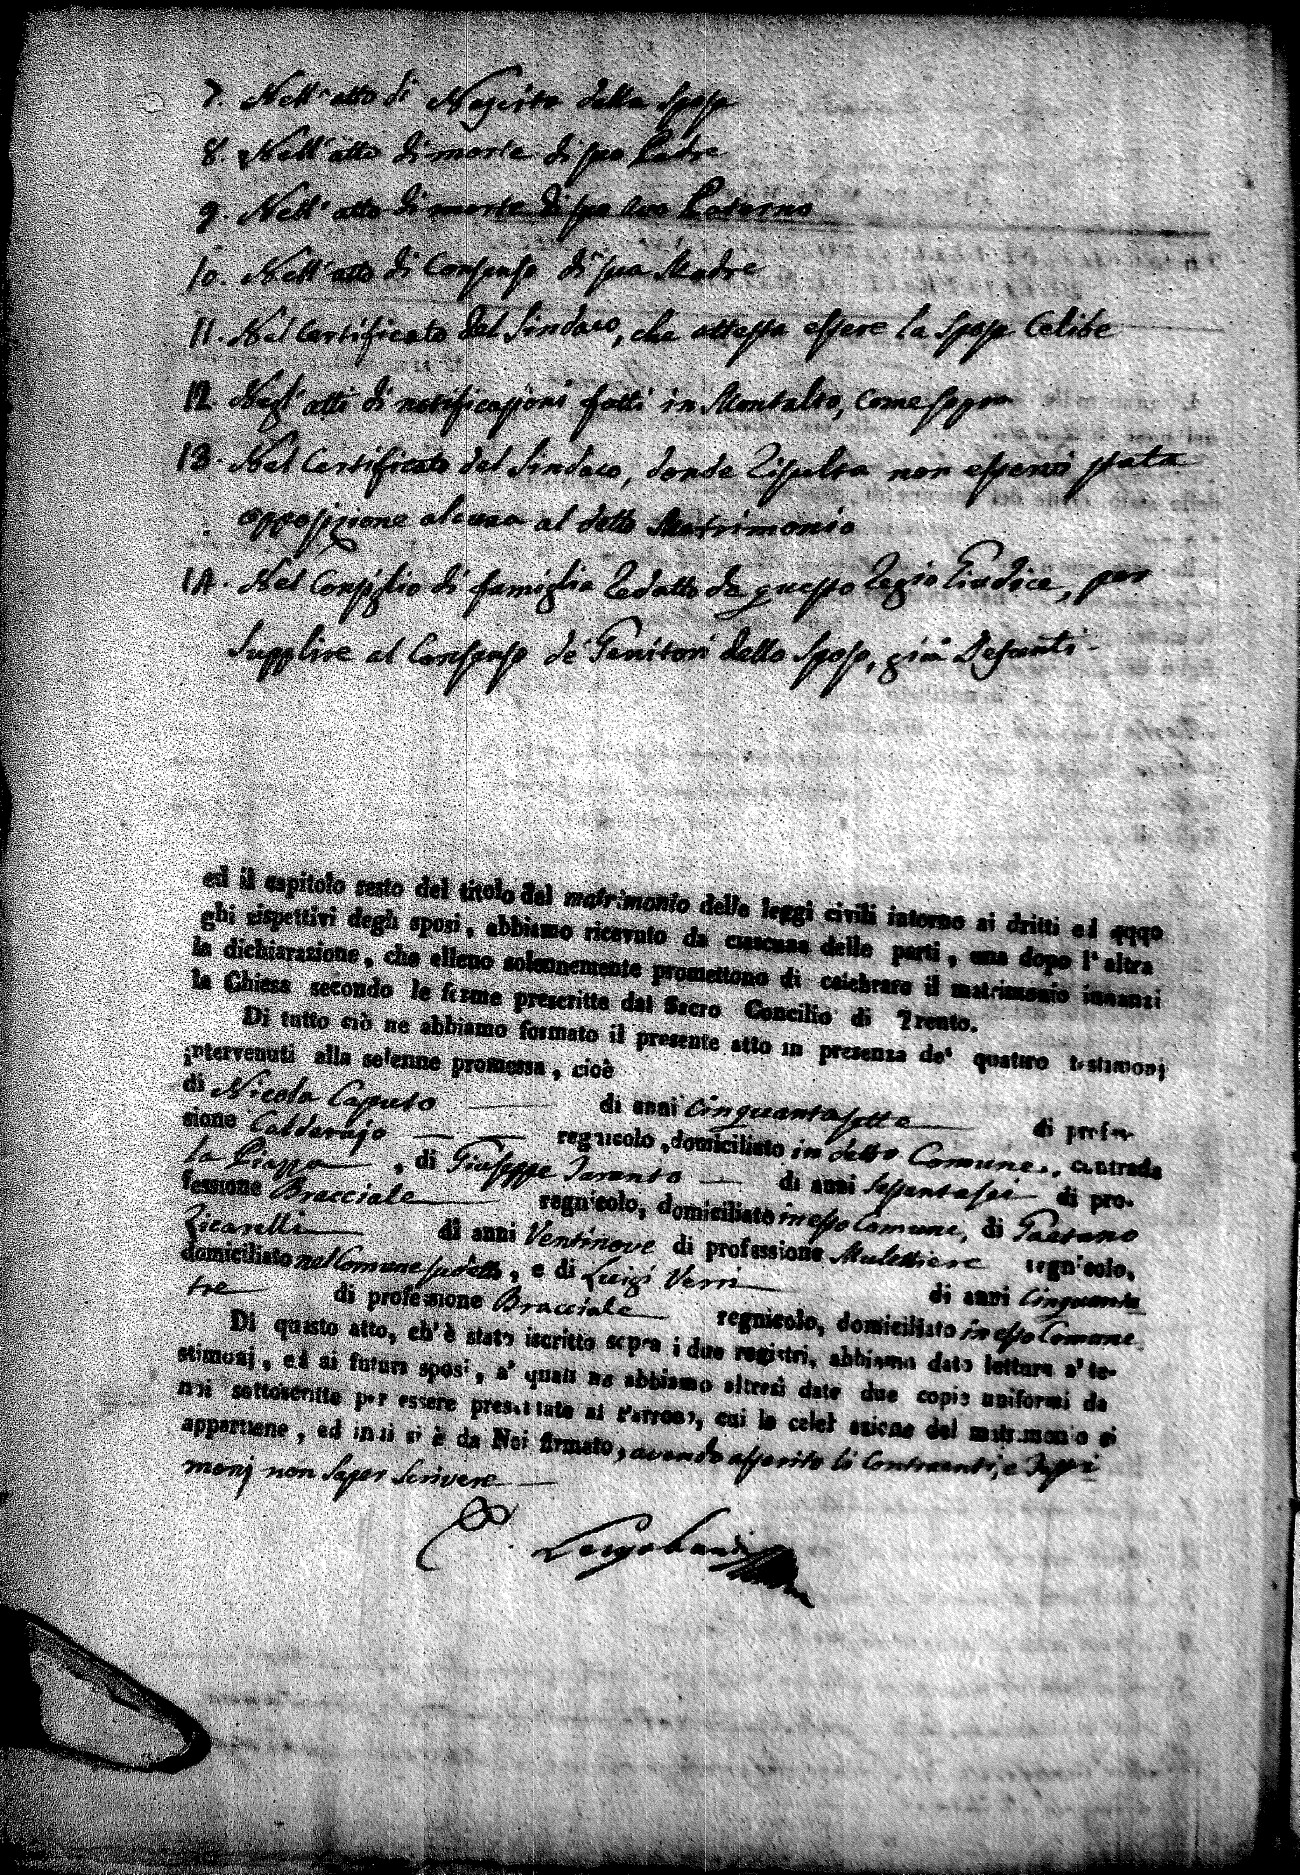 7. Nell'atto di Nascita della Sposa
8. Nell'atto di morte di suo Padre
9. Nell'atto di morte di suo Avo Paterno
10. Nell'atto di Consenso di sua Madre
11. Nel Certificato del Sindaco, che attessa essere la Sposa Celibe
12. Negl'atti di notificazioni fatti in Montalto, come sopra
13. Nel Certificato del Sindaco, donde Risulta non essersi stata
opposizione alcuna al detto Matrimonio
14. Nel Consiglio di famiglia Redatto da questo Regio Giudice, per
Supplire al Consenso de' Genitori dello Sposo, già Defunti -
ed il capitolo sesto del titolo del matrimonio delle leggi civili intorno ai dritti ed obbli
ghi rispettivi degli sposi, abbiamo ricevuto da ciascuna delle parti, una dopo l'altra
la dichiarazione, che elleno solennemente promettono di celebrare il matrimonio innanzi
la Chiesa secondo le forme prescritte dal Sacro Concilio di Trento.
Di tutto ciò ne abbiamo formato il presente atto in presenza de' quattro testimonj
intervenuti alla solenne promessa, cioè
di Nicola Caputo di anni cinquantasette di profes-
sione Caldarajo regnicolo, domiciliato in detto Comune, contrada
la Piazza, di Giuseppe Taranto di anni Sessantasei di pro-
fessione Bracciale regnicolo, domiciliato in esso Comune, di Gaetano
Zicarelli di anni Ventinove di professione Mulettiere regnicolo,
domiciliato nel Comune sudetto, e di Luigi Verri di anni Cinquanta
tre di professione Bracciale regnicolo, domiciliato in esso Comune.
Di questo atto, ch'è stato iscritto sopra i due registri, abbiamo dato lettura a' te-
stimonj, ed ai futuri sposi, a' quali ne abbiamo altresì date due copie uniformi da
noi sottoscritte per essere presentate al Parroco, cui la celebrazione del matrimonio si
appartiene, ed indi si è da Noi firmato, avendo asserito li Contraenti, e Testi
monj non saper Scrivere